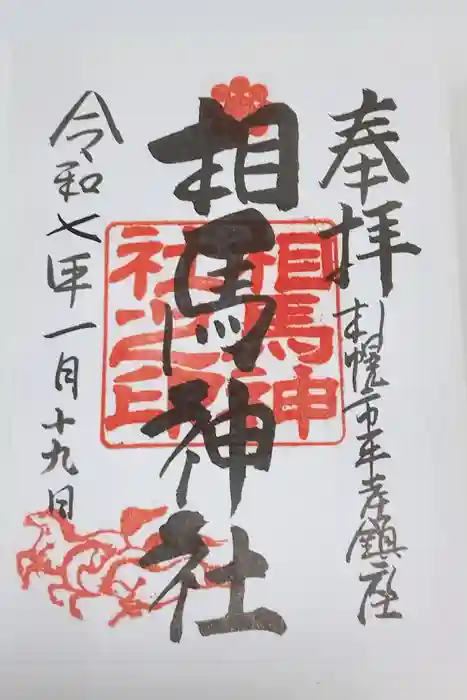 奉拝
札幌市平岸鎮座
相馬神社
相馬神社之印
令和七年一月十九日